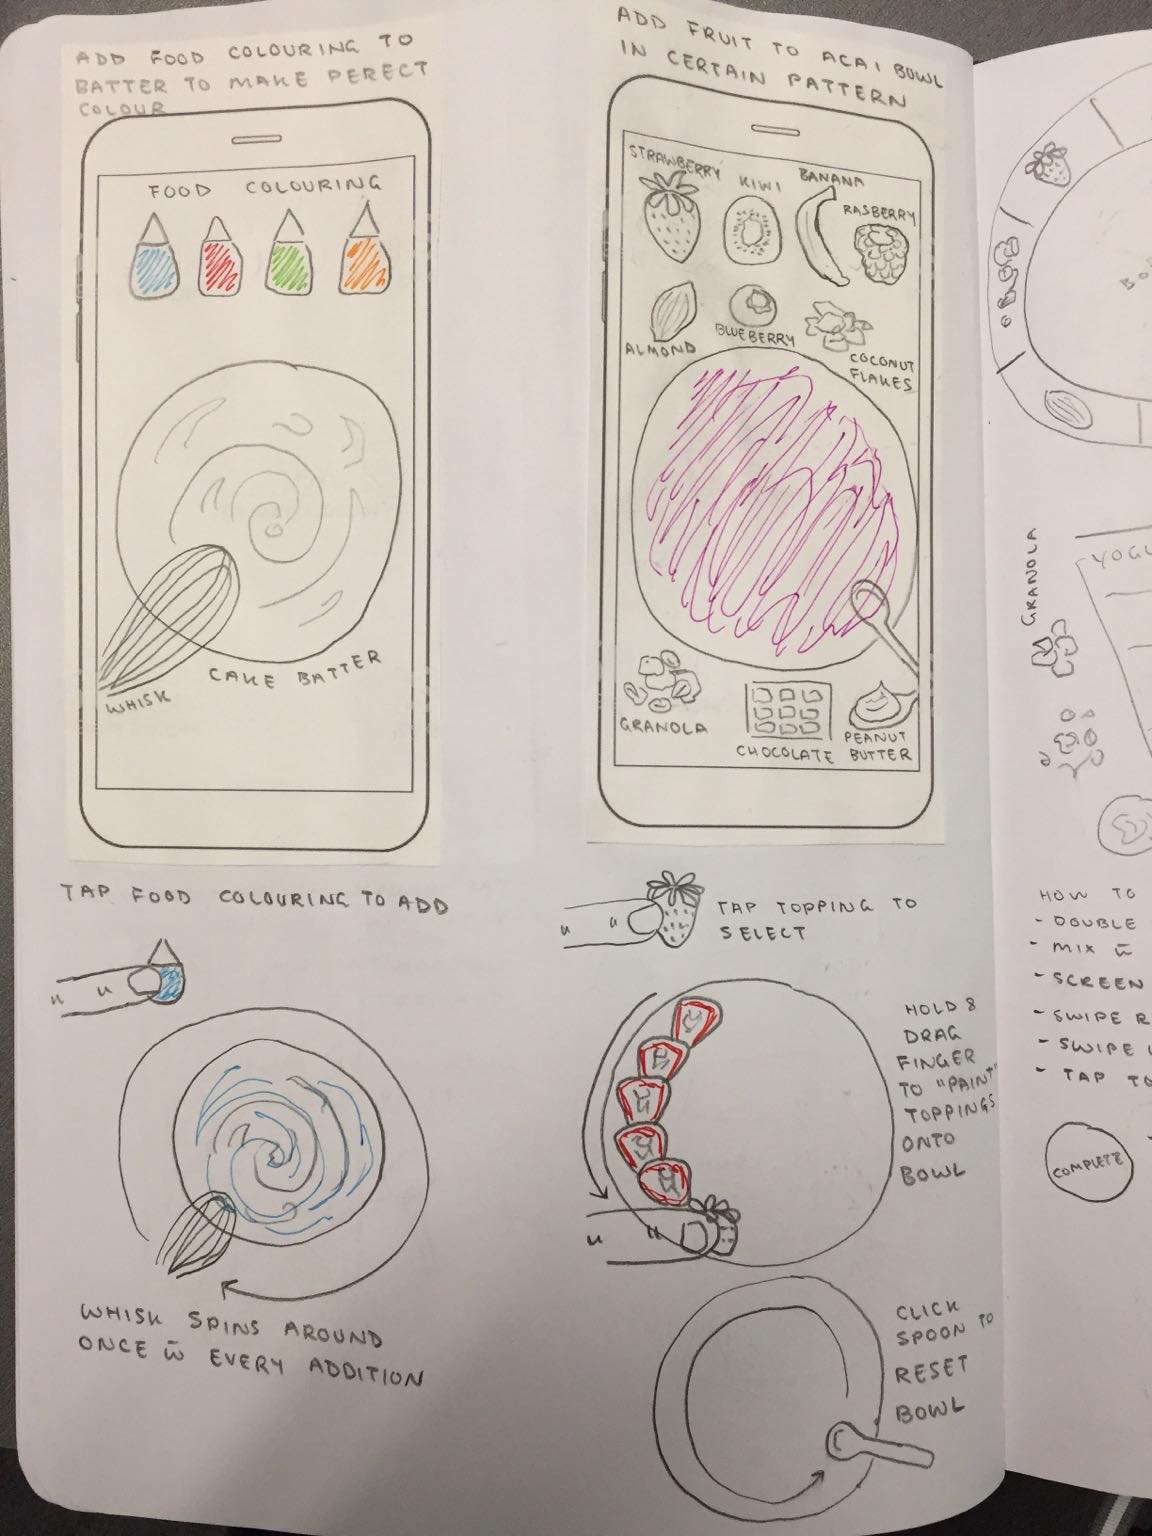 ADD FOOD COLOURING TO
BATTER TO MAKE PERECT
COLOUR
FOOD COLOURING
WHISK
CAKE BATTER
TAP FOOD COLOURING TO ADD
WHISK SPINS AROUND
ONCE w̄ EVERY ADDITION
ADD FRUIT TO ACAI BOWL
IN CERTAIN PATTERN
STRAWBERRY
KIWI
BANANA
RASBERRY
ALMOND
BLUEBERRY
COCONUT
FLAKES
GRANOLA
CHOCOLATE
PEANUT
BUTTER
TAP TOPPING TO
SELECT
HOLD &
DRAG
FINGER
TO "PAINT"
TOPPINGS
ONTO
BOWL
CLICK
SPOON TO
RESET
BOWL
GRANOLA
HOW TO
- DOUBLE
- MIX w̄
- SCREEN
- SWIPE
- SWIPE
- TAP TO
COMPLETE